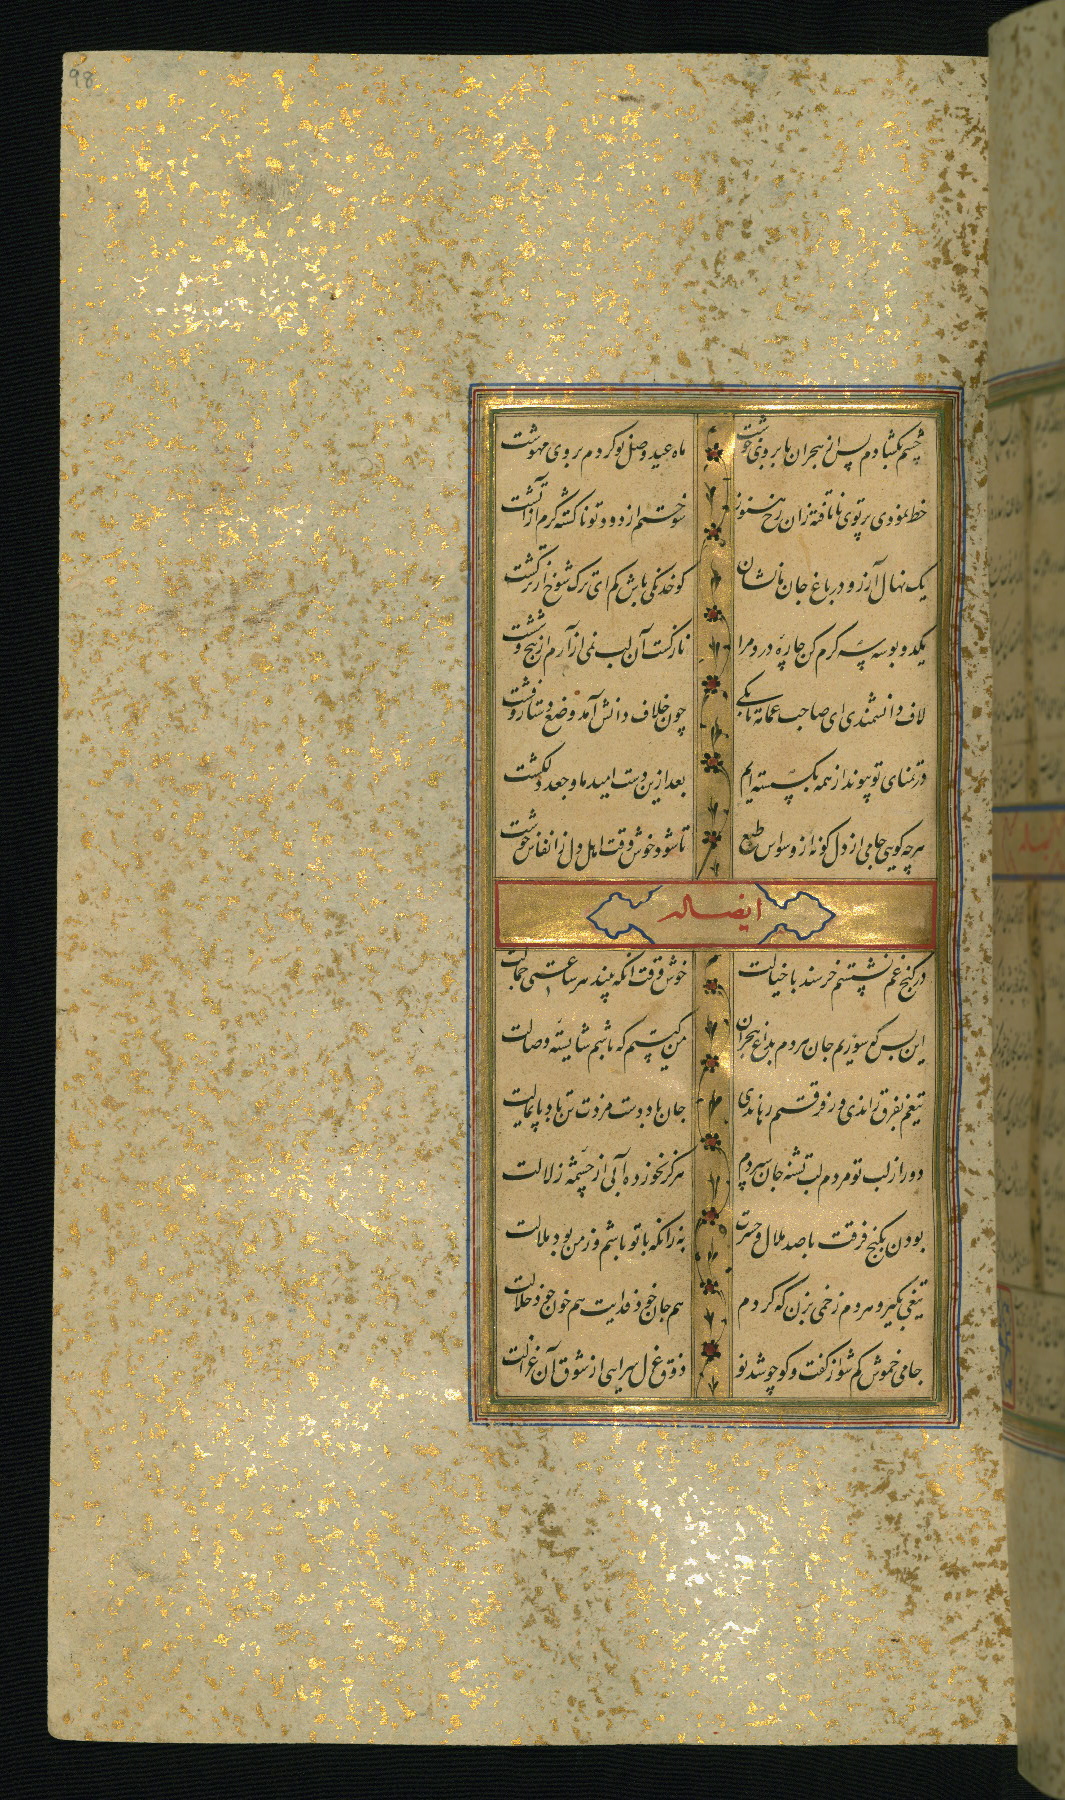 98
چشم بگشادم پس از هجران بروی خوشت ماه عید وصل نو کردم بروی مهوشت
خط نمودی پرتوی نا تافته زان رخ هنوز سوختم از دود تو ناگشته گرم از آتشت
یک نهال آرزو در باغ جان ما نشان کو خدنگی باش کم ای ترک شوخ از ترکشت
یکدو بوسه کرم کن چارهٔ درد مرا نازکست آن لب نمی‌آزارم از پنج و ششت
لاف دانشمندی ای صاحب عمامه تا بکی چون خلاف دانش آمد وضع دستار و فشت
در تمنای تو پیوند از همه بگسسته‌ایم بعد ازین دست امید ما و جعد دلکشت
هرچه گویی جامی از دل گو نه از وسواس طبع تا شود خوش وقت اهل دل ز انفاس خوشت
ایضا له
در کنج غم نشستم خرسند با خیالت خوش وقت آنکه بیند هر ساعتی جمالت
این بس که سوزیم جان هردم بداغ هجران من کیستم که باشم شایستهٔ وصالت
تیغم بفرق راندی وز فرقتم رهاندی جان باد دست مزدت تن باد پایمالت
دور از لب تو مردم لب تشنه جان سپردم هرگز نخورده آبی از چشمه زلالت
بودن بکنج فرقت با صد ملال و حسرت به زانکه با تو باشم وز من بود ملالت
تیغی بگیر و هردم زخمی بزن که کردم هم جان خود فدایت هم خون خود حلالت
جامی خموش کم شو از گفت و گو چو شد نو ذوق غزل سرایی از شوق آن غزالت